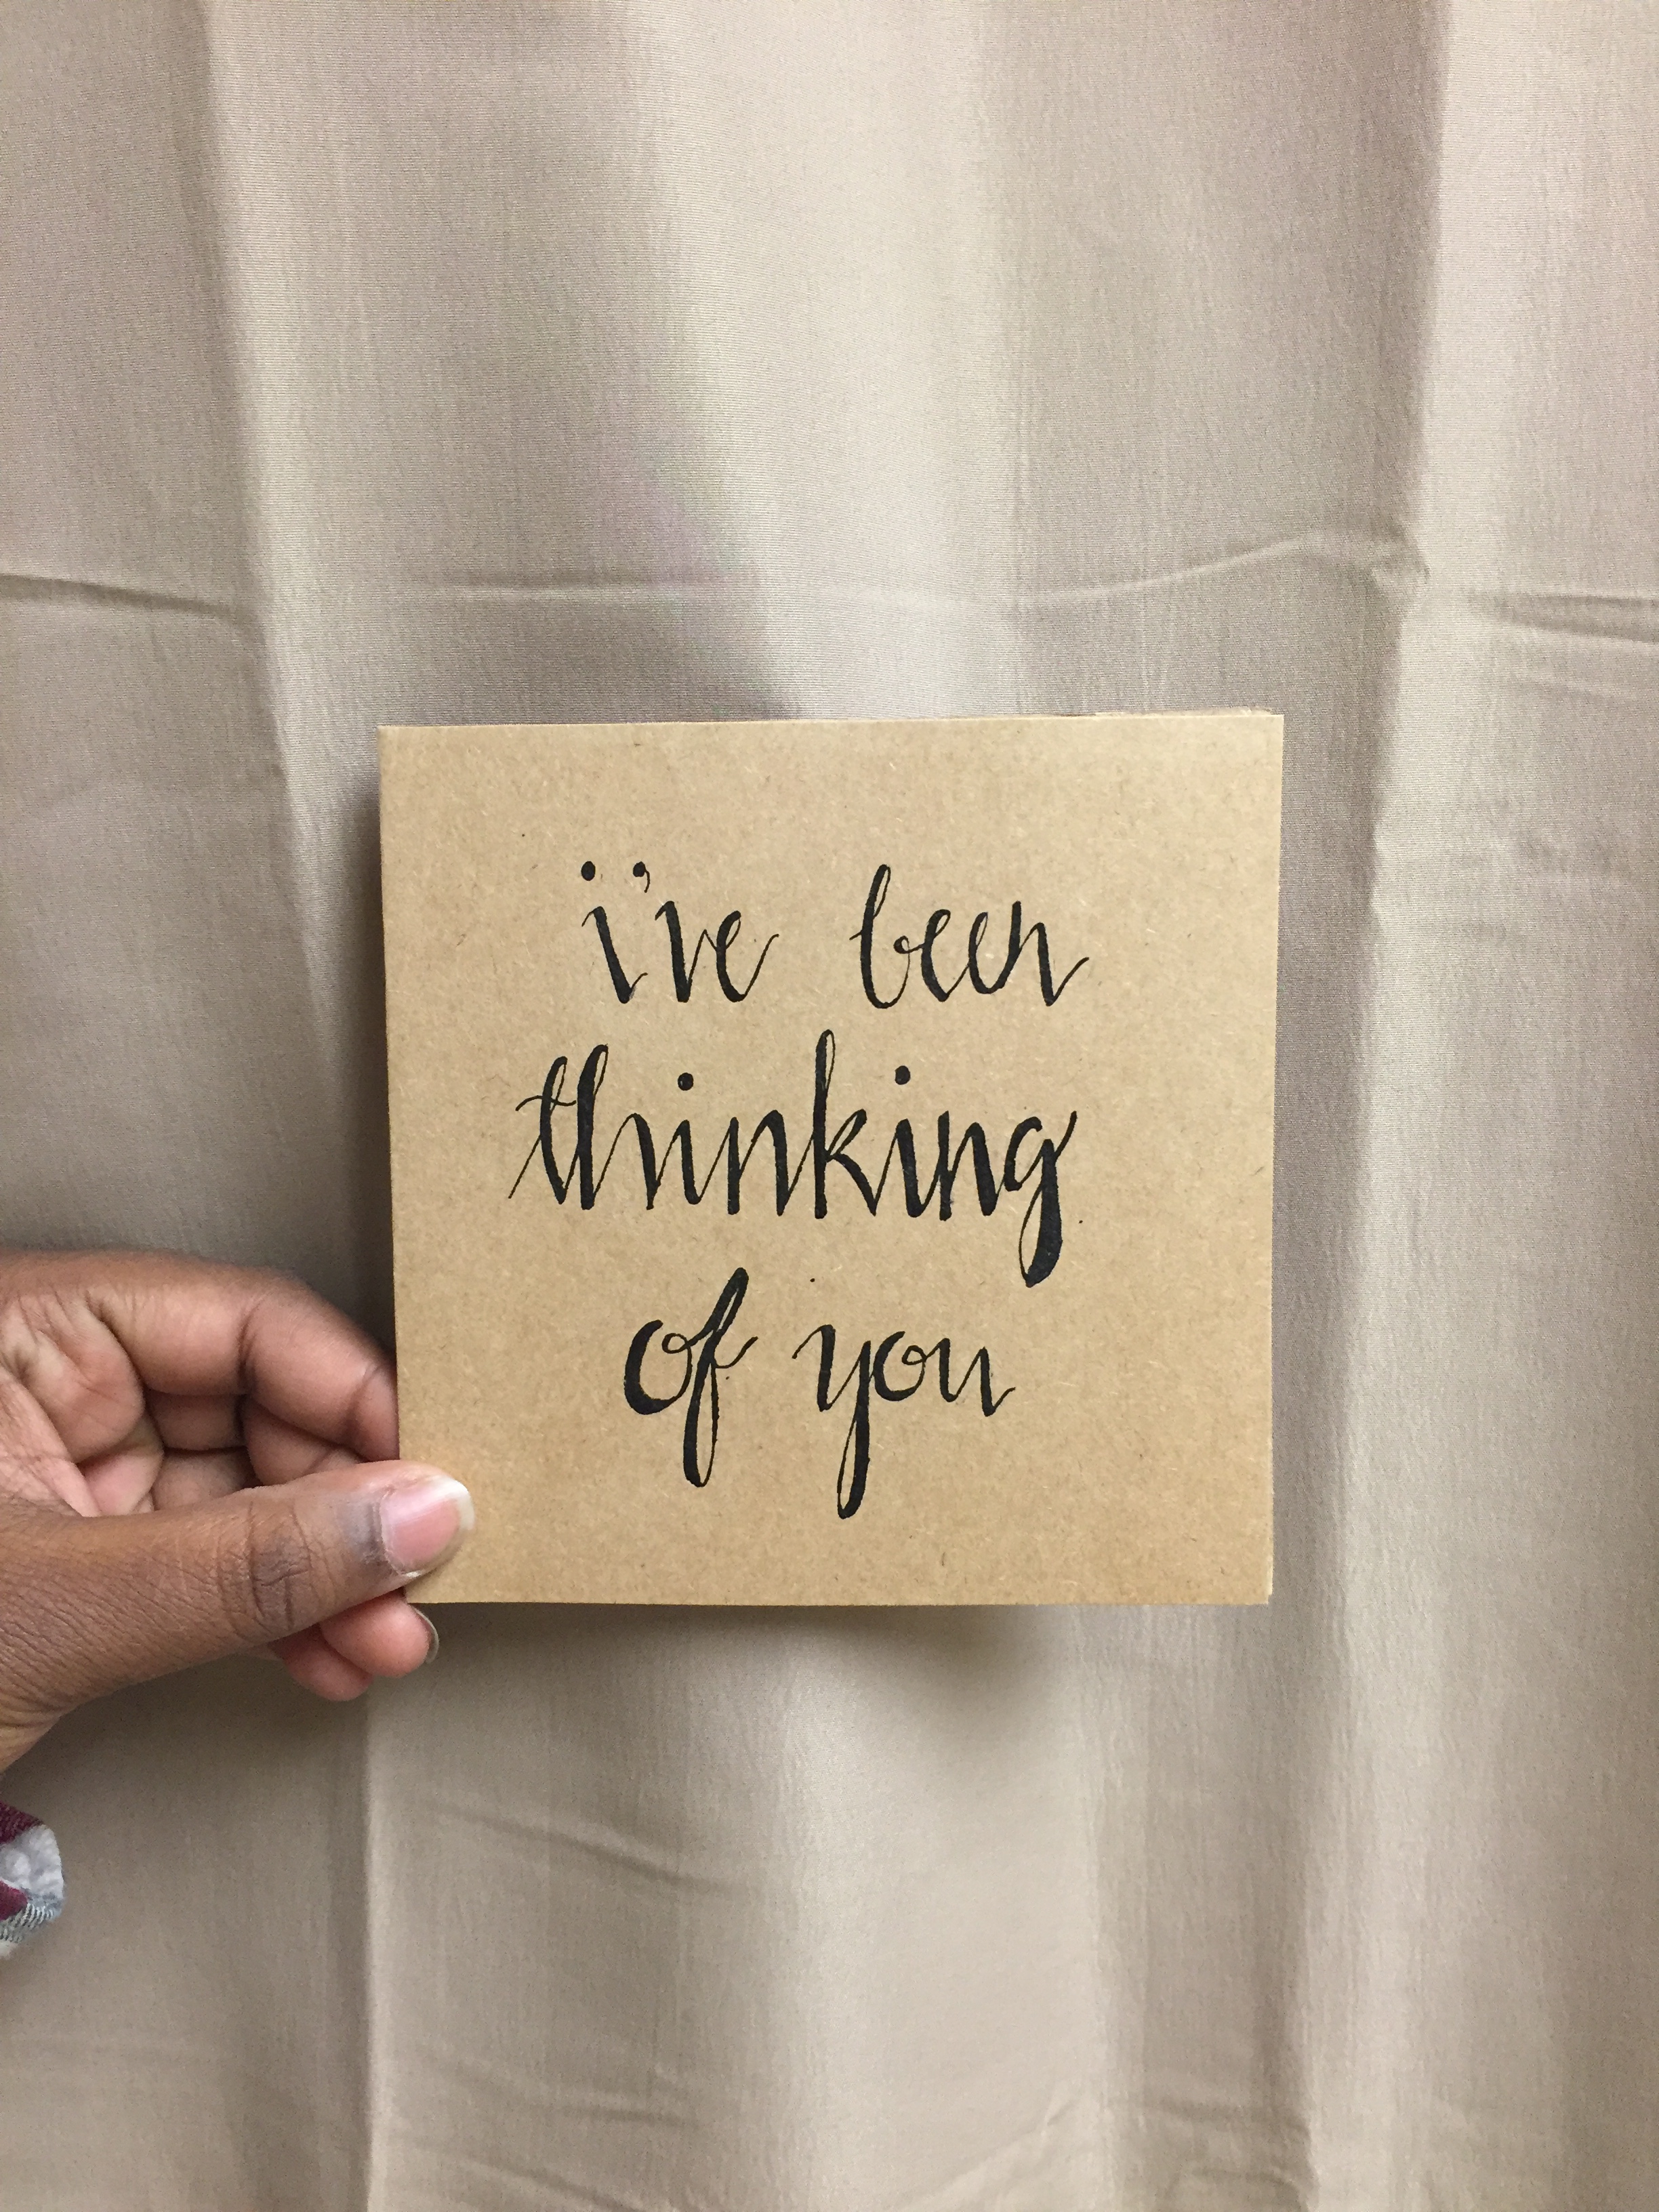 i've been
thinking
of you